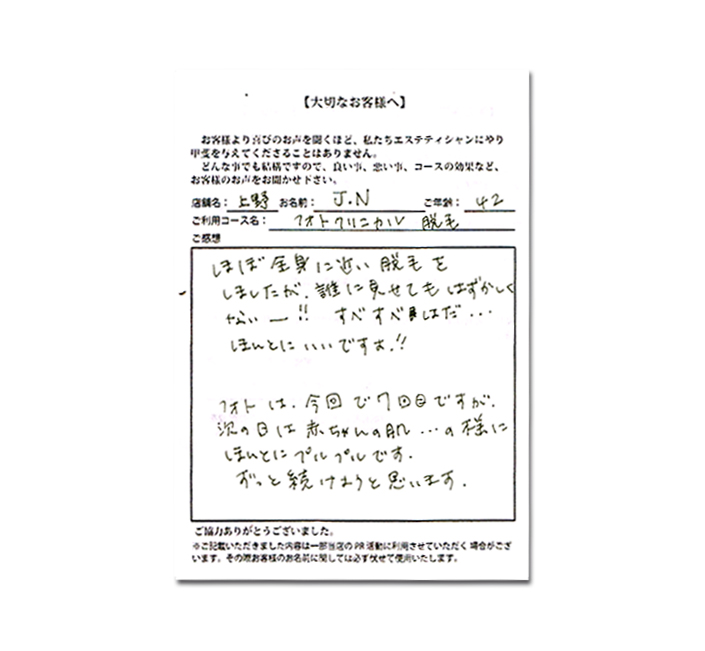 【大切なお客様へ】
お客様より喜びのお声を聞くほど、私たちエステティシャンにやり
甲斐を与えてくださることはありません。
どんな事でも結構ですので、良い事、悪い事、コースの効果など、
お客様のお声をお聞かせ下さい。
店舗名：上野 お名前：J.N ご年齢：42
ご利用コース名：フォトクリニカル 脱毛
ご感想
ほぼ全身に近い脱毛を
しましたが、誰に見せてもはずかしく
ないー!! すべすべはだ...
ほんとにいいですよ!!
フォトは、今回で7回目ですが、
次の日は赤ちゃんの肌...の様に
ほんとにプルプルです。
ずっと続けようと思います。
ご協力ありがとうございました。
※ご記載いただきました内容は一部当店のPR活動に利用させていただく場合がござ
います。その際お客様のお名前に関しては必ず伏せて使用いたします。